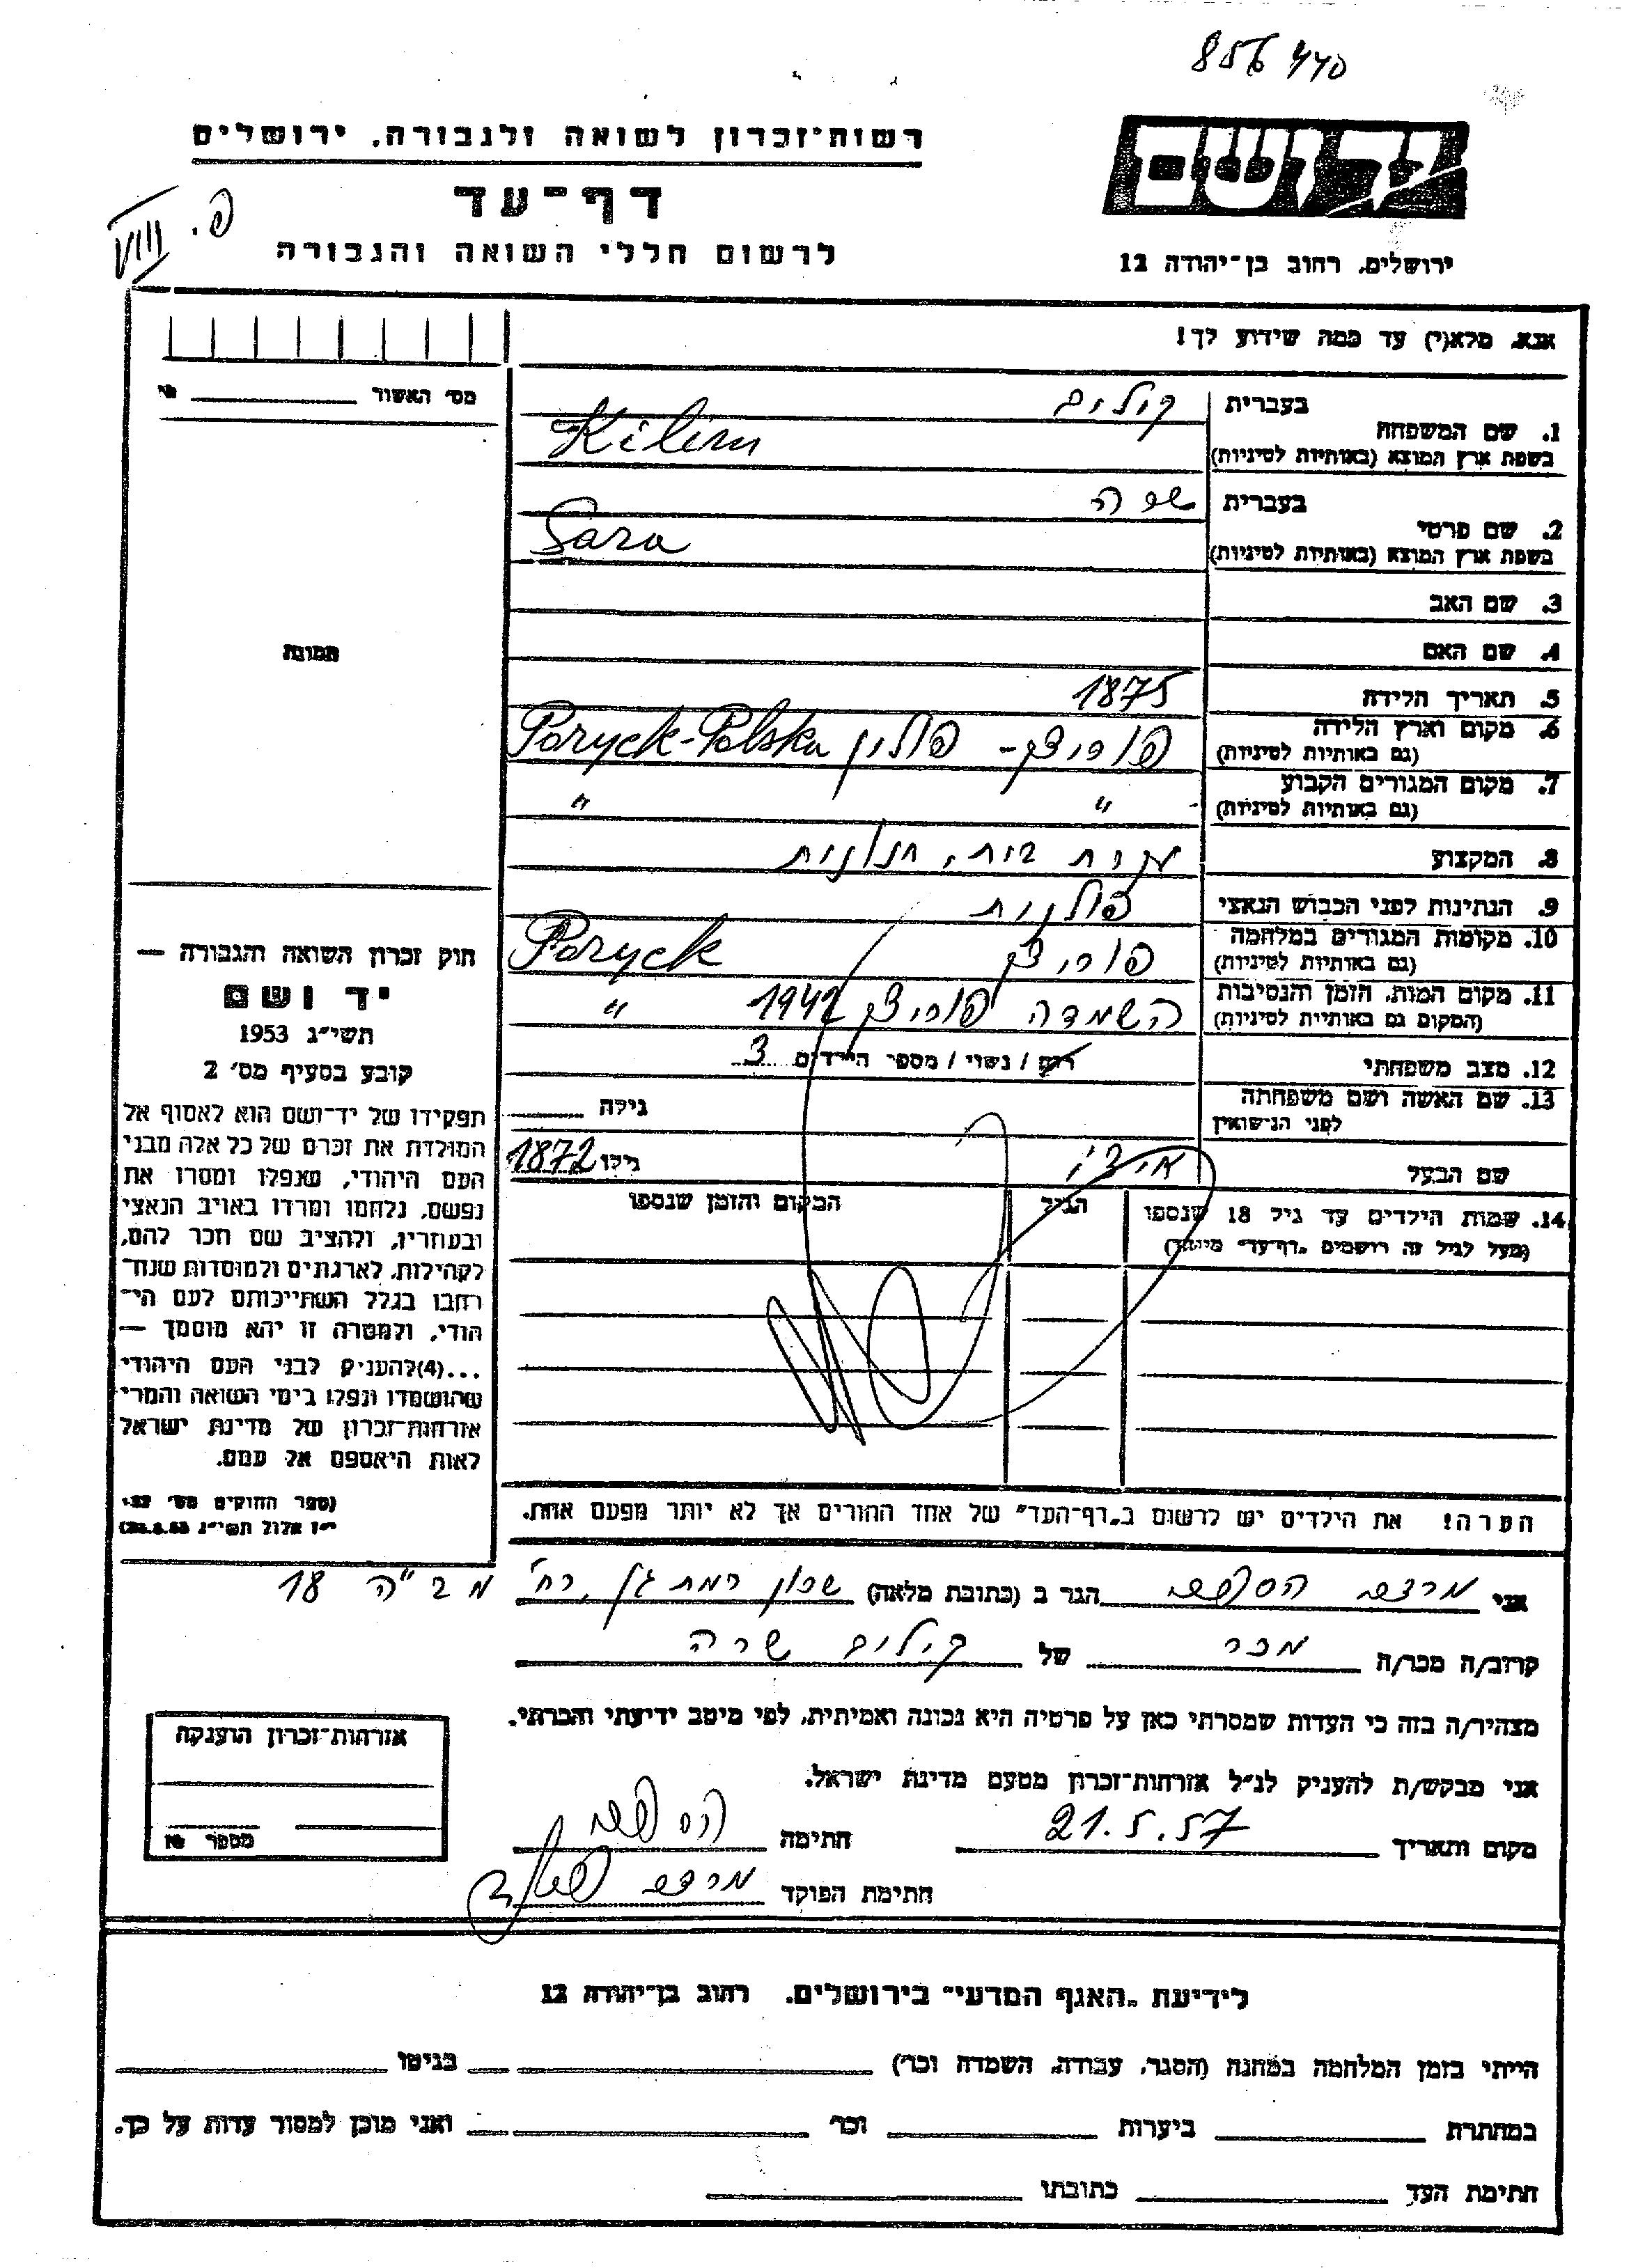 856440
רשות־זכרון לשואה ולגבורה. ירושלים
יד ושם
דף־עד
פ. VIII
לרשום חללי השואה והגבורה
ירושלים. רחוב בן־יהודה 12
אנא. מלא(י) עד כמה שידוע לך!
מס׳ האשור
בעברית קילים
1. שם המשפחה
בשפת ארץ המוצא (באותיות לטיניות) Kilim
בעברית שרה
2. שם פרטי
בשפת ארץ המוצא (באותיות לטיניות) Sara
3. שם האב
4. שם האם
תמונה
5. תאריך הלידה 1875
6. מקום וארץ הלידה פוריצק - פולין Poryck-Polska
(גם באותיות לטיניות)
7. מקום המגורים הקבוע " "
(גם באותיות לטיניות)
8. המקצוע עקרת בית, חנונית
9. הנתינות לפני הכבוש הנאצי פולנית
10. מקומות המגורים במלחמה פוריצק Poryck
(גם באותיות לטיניות)
11. מקום המות, הזמן והנסיבות השמדה פוריצק 1942 "
(המקום גם באותיות לטיניות)
12. מצב משפחתי רוק / נשוי / מספר הילדים 3
13. שם האשה ושם משפחתה גילה
לפני הנישואין
שם הבעל גילו 1872
14. שמות הילדים עד גיל 18 שנספו הגיל המקום והזמן שנספו
(מעל לגיל זה רושמים "דף־עד" מיוחד)
הערה! את הילדים יש לרשום ב"דף־העד" של אחד ההורים אך לא יותר מפעם אחת.
חוק זכרון השואה והגבורה —
יד ושם
תשי״ג 1953
קובע בסעיף מס׳ 2
תפקידו של יד־ושם הוא לאסוף אל
המולדת את זכרם של כל אלה מבני
העם היהודי, שנפלו ומסרו את
נפשם, נלחמו ומרדו באויב הנאצי
ובעוזריו, ולהציב שם וזכר להם,
לקהילות, לארגונים ולמוסדות שנח־
רבו בגלל השתייכותם לעם הי־
הודי, ולמטרה זו יהא מוסמך —
...(4)להעניק לבני העם היהודי
שהושמדו ונפלו בימי השואה והמרי
אזרחות־זכרון של מדינת ישראל
לאות היאספם אל עמם.
(ספר החוקים מס׳ 132.
י״ז אלול תשי״ג 28.8.53)
אני מרדכי הגר ב (כתובת מלאה) שכון רמת גן, רח׳ מב״ה 18
קרוב/ה מכר/ה מכר של קילים שרה
מצהיר/ה בזה כי העדות שמסרתי כאן על פרטיה היא נכונה ואמיתית, לפי מיטב ידיעתי והכרתי.
אני מבקש/ת להעניק לנ״ל אזרחות־זכרון מטעם מדינת ישראל.
מקום ותאריך 21.5.57 חתימה
חתימת הפוקד
אזרחות־זכרון הוענקה
מספר
לידיעת "האגף המדעי" בירושלים. רחוב בן־יהודה 12
הייתי בזמן המלחמה במחנה (הסגר, עבודה, השמדה וכו׳) בגיטו
במחתרת ביערות וכו׳ ואני מוכן למסור עדות על כך.
חתימת העד כתובתו